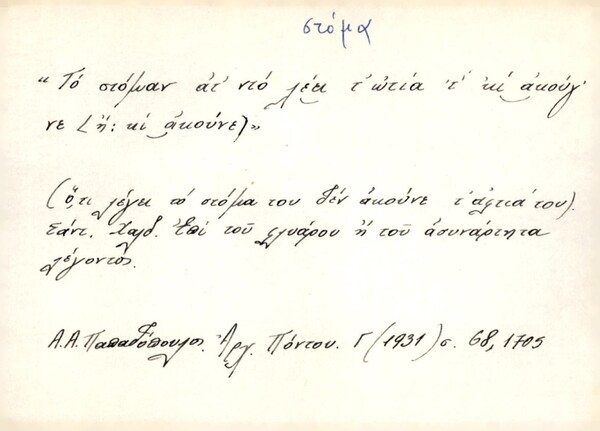 στόμα
"Τό στόμαν ἀτ' ντό λέει τ' ὠτία 'τ' 'κί ἀκούγ'
νε <ἤ: κί ἀκούνε)»
(Ὅ,τι λέγει τό στόμα του δέν ἀκούνε τ' αὐτιά του).
Σάντ. Χαλδ. Ἐπί τοῦ φλυάρου ἤ τοῦ ἀσυνάρτητα
λέγοντος.
Α.Α. Παπαδόπουλος. Ἀρχ. Πόντου. Γ (1931) σ. 68, 1705